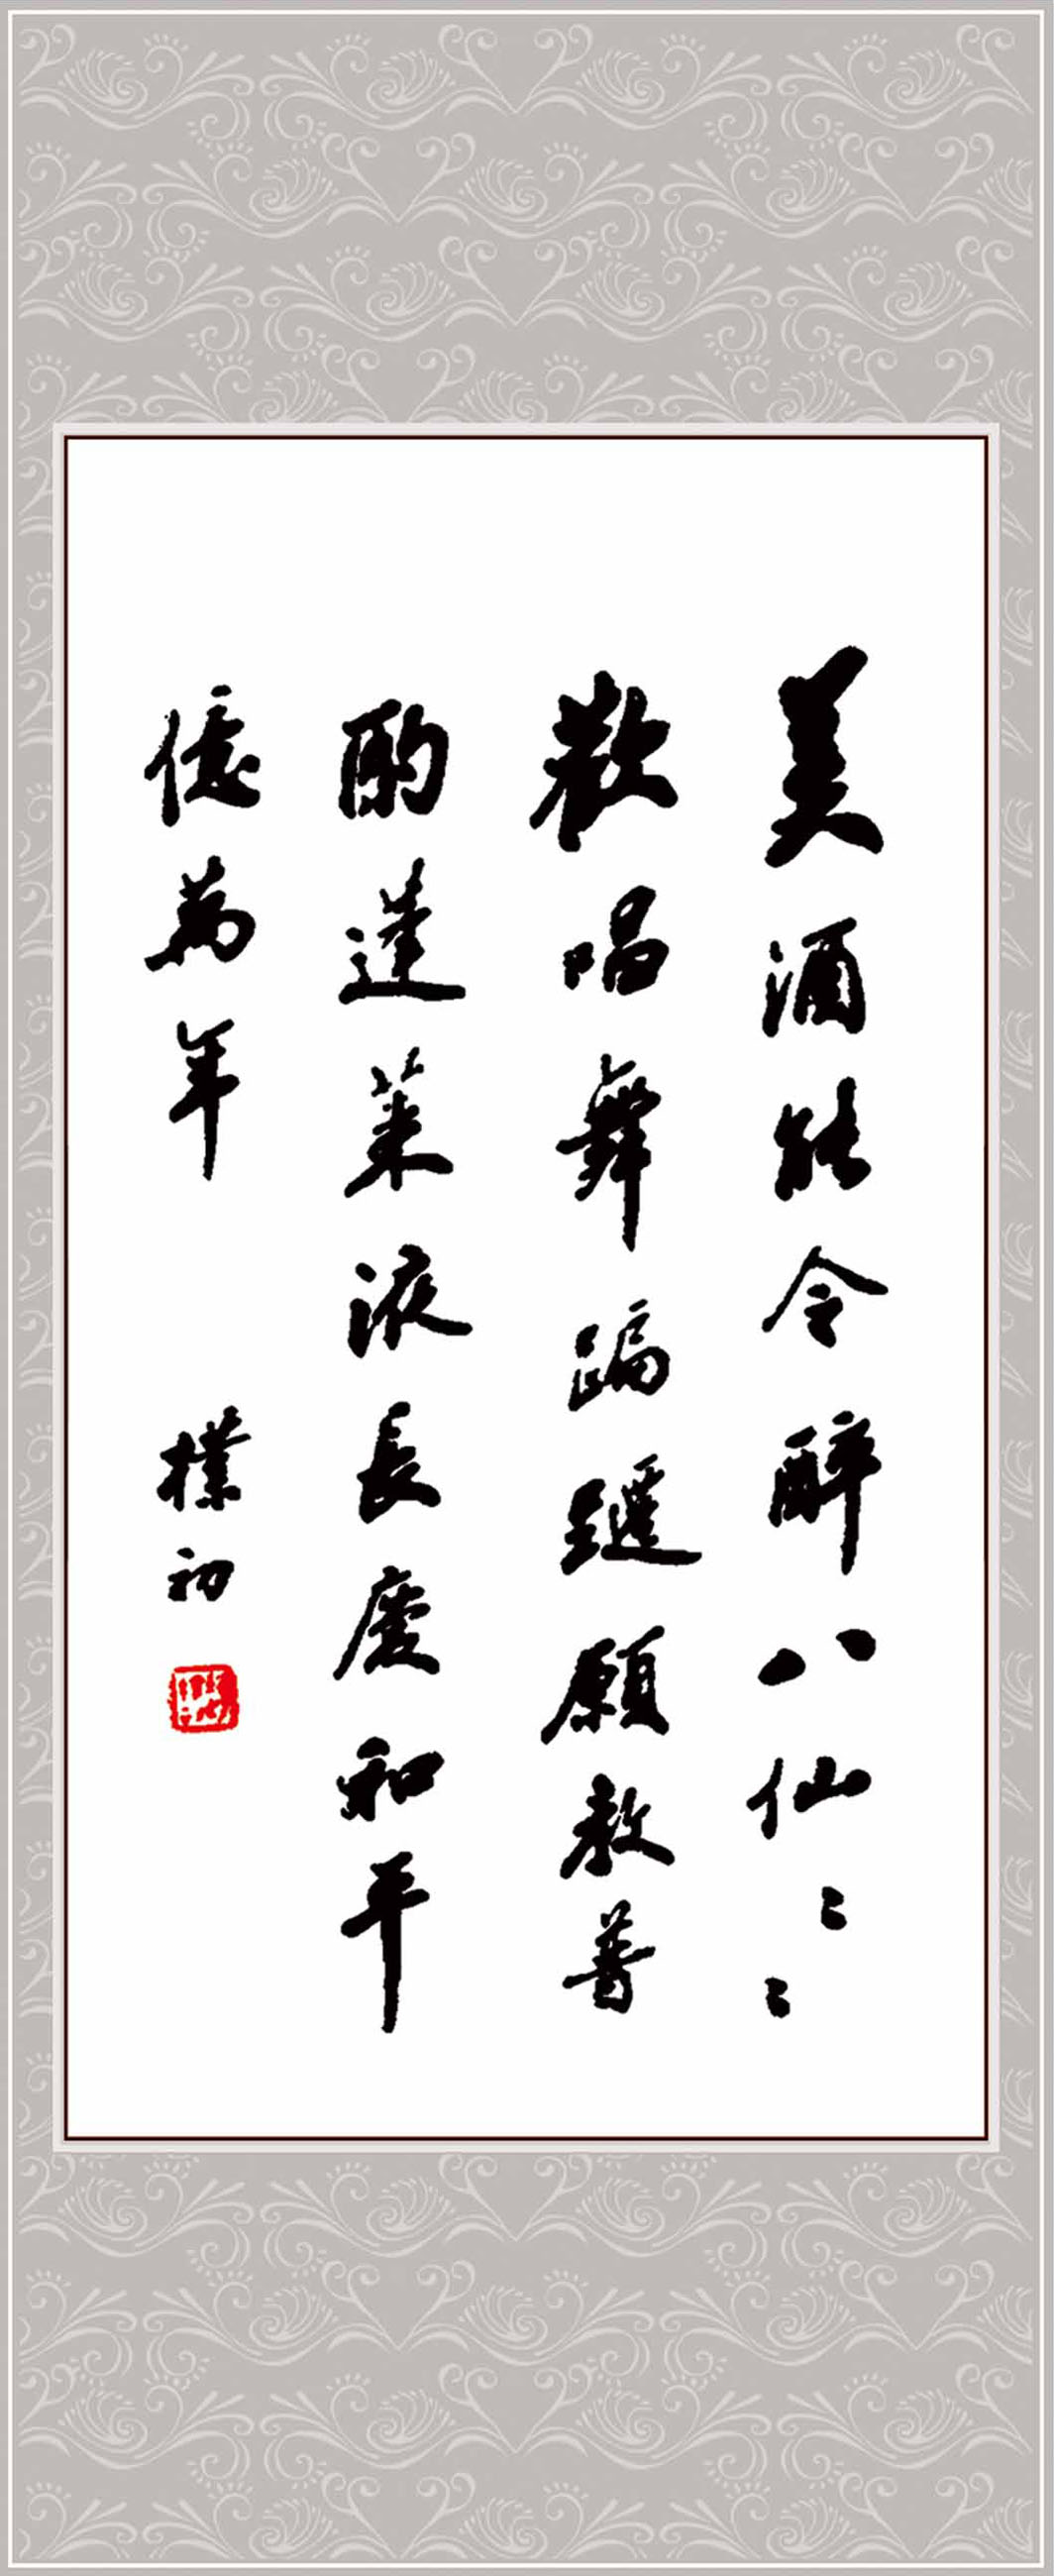 美酒能令醉八仙〻〻
歡唱舞蹁躚願教普
酌蓬萊液長慶和平
億萬年
樸初